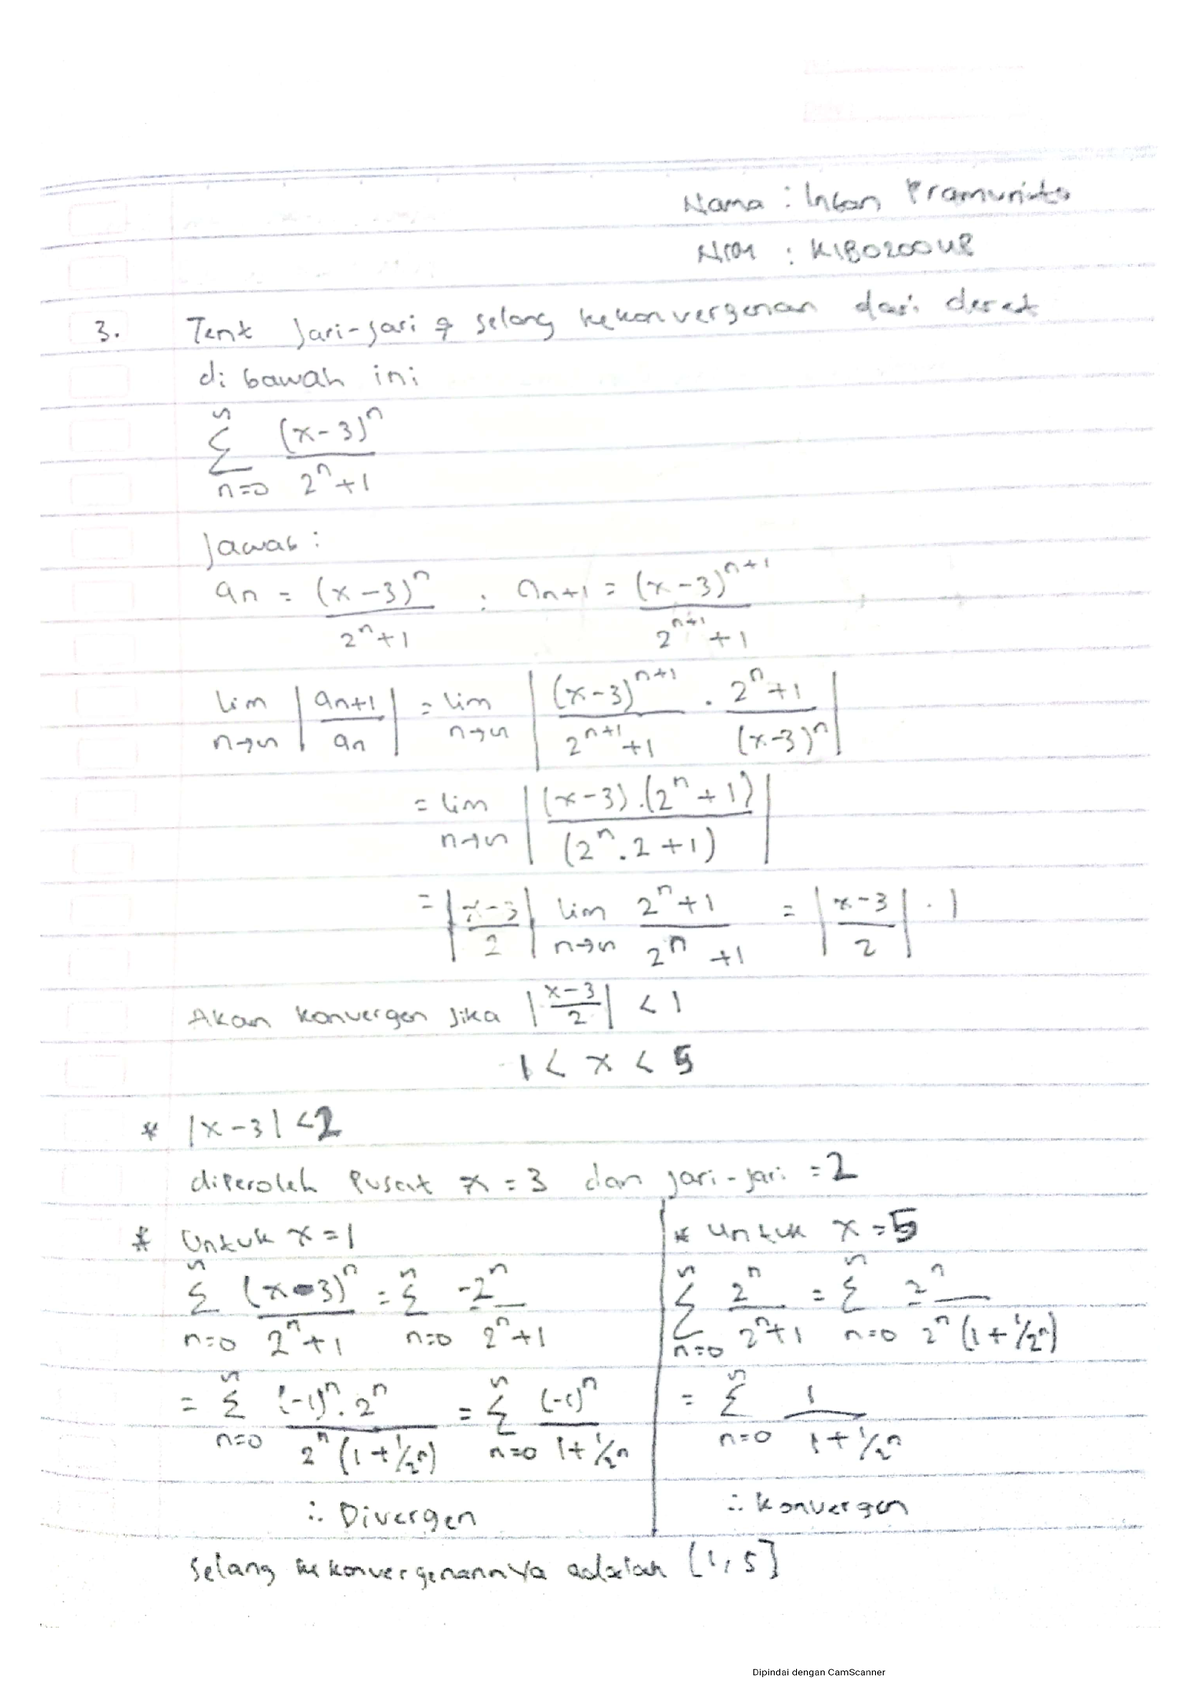 Nama : Intan Pramunita
NIM : K1B020048
3. Tent Jari-jari & selang kekonvergenan dari deret
di bawah ini
∑_{n=0}^{∞} (x-3)^n / (2^n+1)
Jawab :
an = (x-3)^n / (2^n+1) ; an+1 = (x-3)^{n+1} / (2^{n+1}+1)
lim_{n→∞} |an+1 / an| = lim_{n→∞} |(x-3)^{n+1} / (2^{n+1}+1) . (2^n+1) / (x-3)^n|
= lim_{n→∞} |(x-3).(2^n+1) / (2^n.2+1)|
= |(x-3)/2| lim_{n→∞} (2^n+1) / (2^n +1) = |(x-3)/2| . 1
Akan konvergen jika |(x-3)/2| < 1
1 < x < 5
* |x-3| < 2
diperoleh Pusat x = 3 dan jari-jari = 2
* Untuk x = 1
∑_{n=0}^{∞} (x-3)^n / (2^n+1) = ∑_{n=0}^{∞} -2^n / (2^n+1)
= ∑_{n=0}^{∞} (-1)^n . 2^n / (2^n (1+1/2^n)) = ∑_{n=0}^{∞} (-1)^n / (1+1/2^n)
∴ Divergen
* Untuk x = 5
∑_{n=0}^{∞} 2^n / (2^n+1) = ∑_{n=0}^{∞} 2^n / (2^n (1+1/2^n))
= ∑_{n=0}^{∞} 1 / (1+1/2^n)
∴ Konvergen
Selang kekonvergenannya adalah (1,5]
Dipindai dengan CamScanner